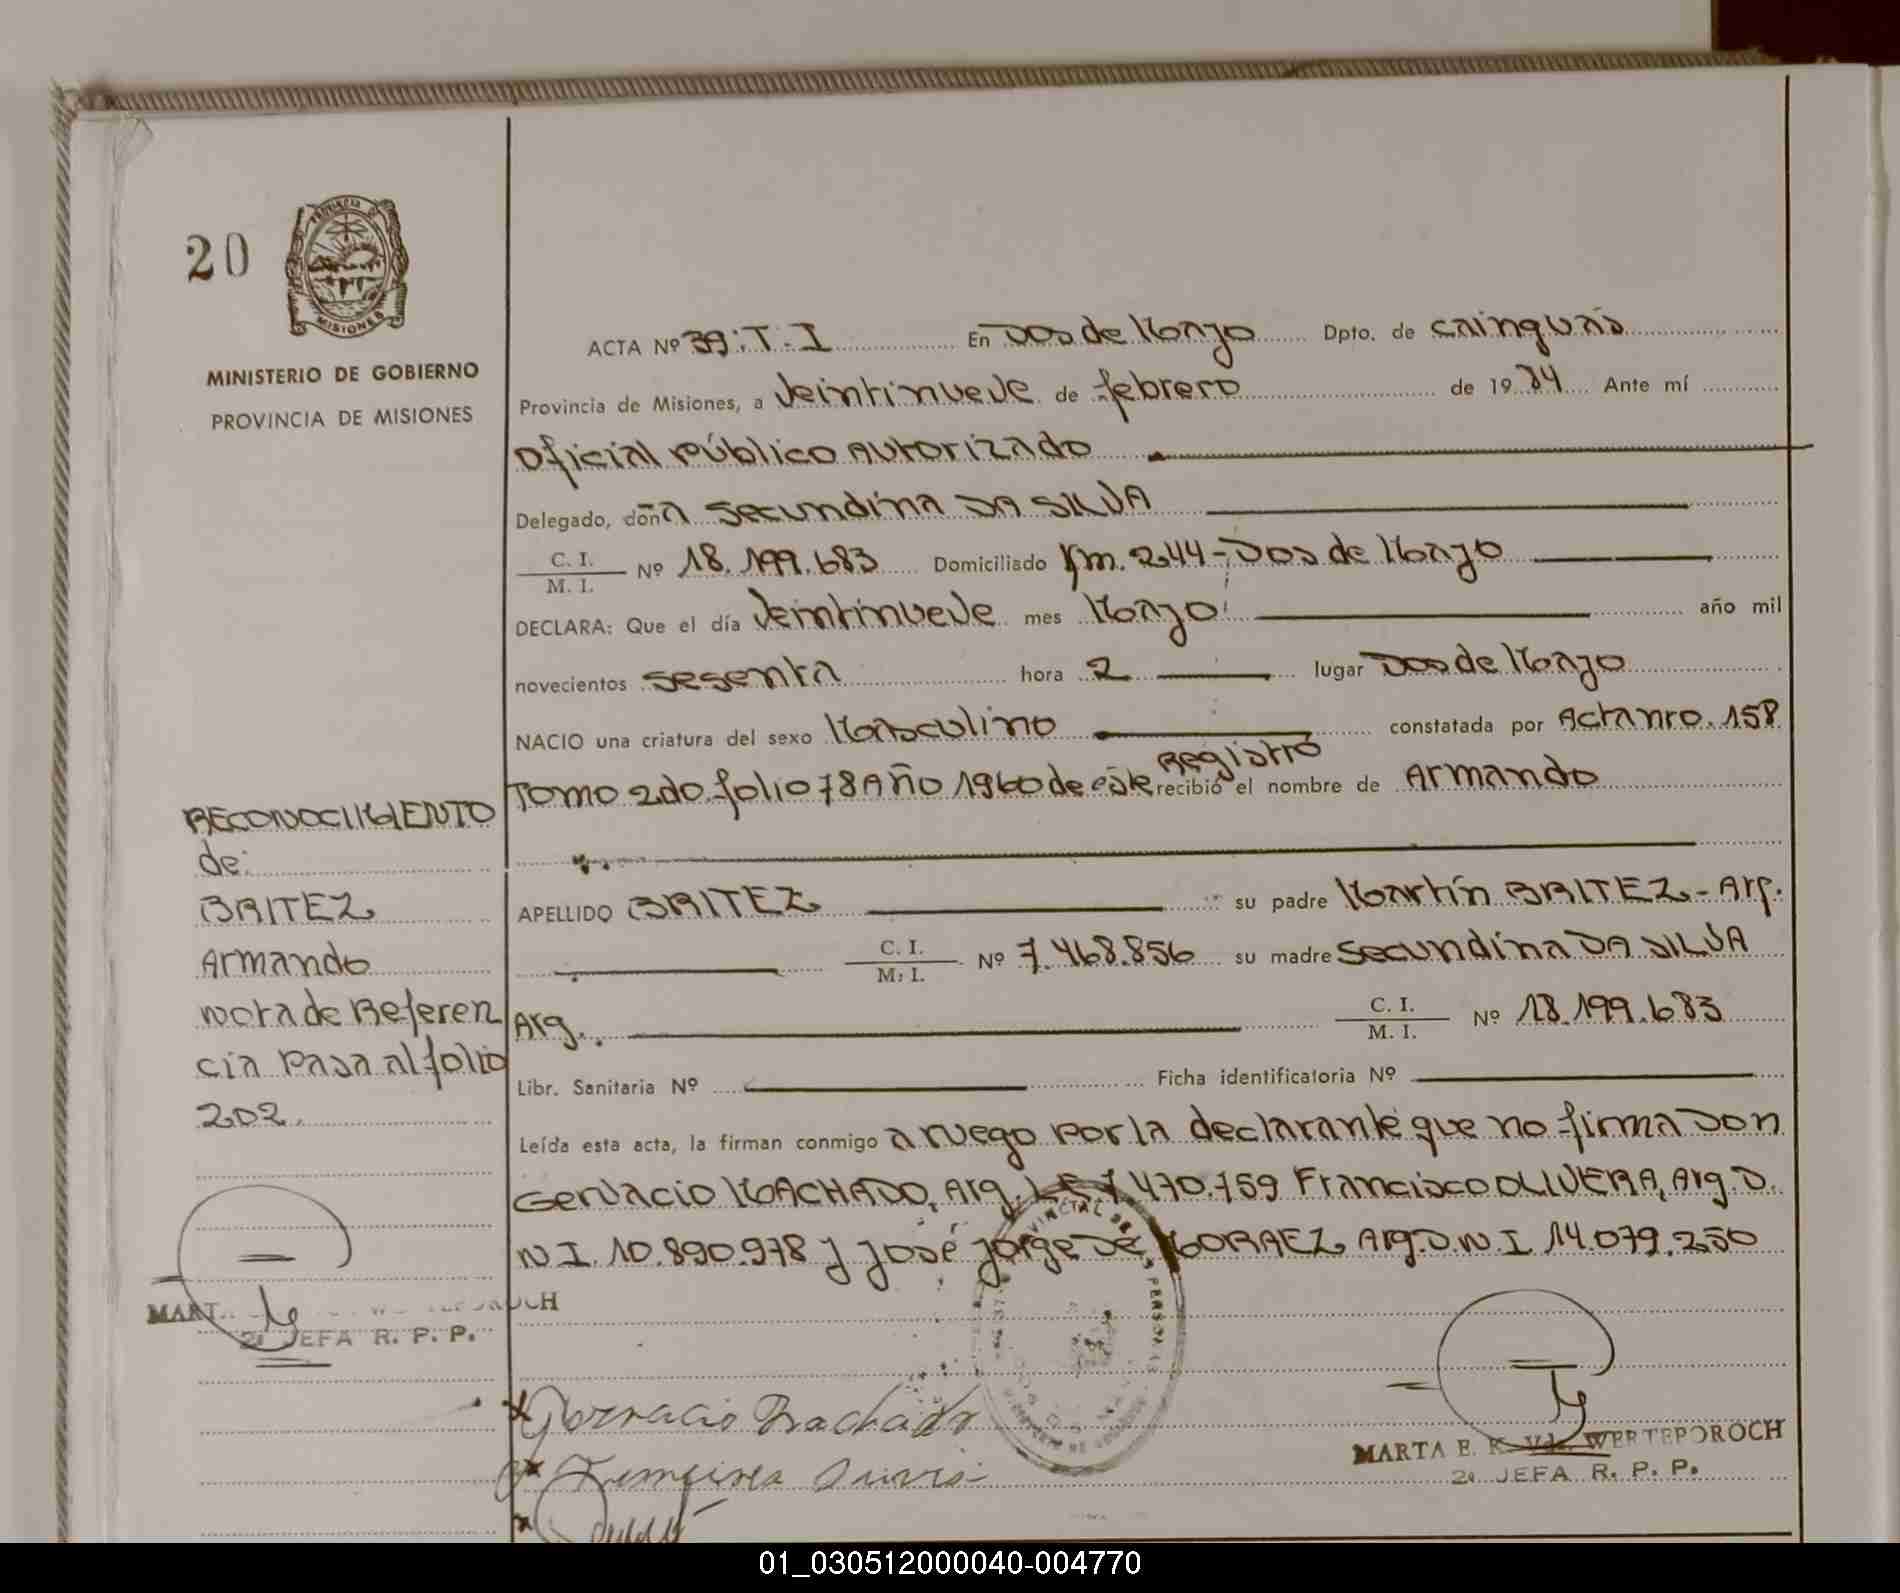 20
PROVINCIA DE
MISIONES
MINISTERIO DE GOBIERNO
PROVINCIA DE MISIONES
ACTA Nº 39:T.I En Dos de Mayo Dpto. de cainguás
Provincia de Misiones, a veintinueve de febrero de 19 84 Ante mí
Oficial Público Autorizado
Delegado, doña Secundina DA SILVA
C. I. / M. I. Nº 18.199.683 Domiciliado Km. 244 - Dos de Mayo
DECLARA: Que el día veintinueve mes Mayo año mil
novecientos sesenta hora 2 lugar Dos de Mayo
NACIO una criatura del sexo Masculino constatada por Acta nro. 158
Registro
Tomo 2do. folio 78 Año 1960 de este recibió el nombre de Armando
APELLIDO BRITEZ su padre Martín BRITEZ - Arg.
C. I. / M. I. Nº 7.468.856 su madre Secundina DA SILVA
Arg. C. I. / M. I. Nº 18.199.683
Libr. Sanitaria Nº Ficha identificatoria Nº
Leída esta acta, la firman conmigo a ruego por la declarante que no firma Don
Gervacio MACHADO, Arg. L.E 7.470.759 Francisco OLIVERA, Arg. D.
N I. 10.890.978 y José Jorge DE MORAEZ, Arg. D.N I 14.079.250
RECONOCIMIENTO
de:
BRITEZ
Armando
nota de Referen
cia Pasa al folio
202.
MART WERTEPOROCH
2a JEFA R. P. P.
PROVINCIAL DE
Gervacio Machado
MARTA E. K. Vda. WERTEPOROCH
2a JEFA R. P. P.
01_030512000040-004770